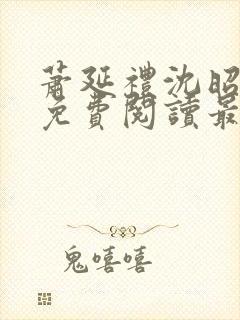 蕭延禮沈昭
免費閱讀最
鬼嘻嘻